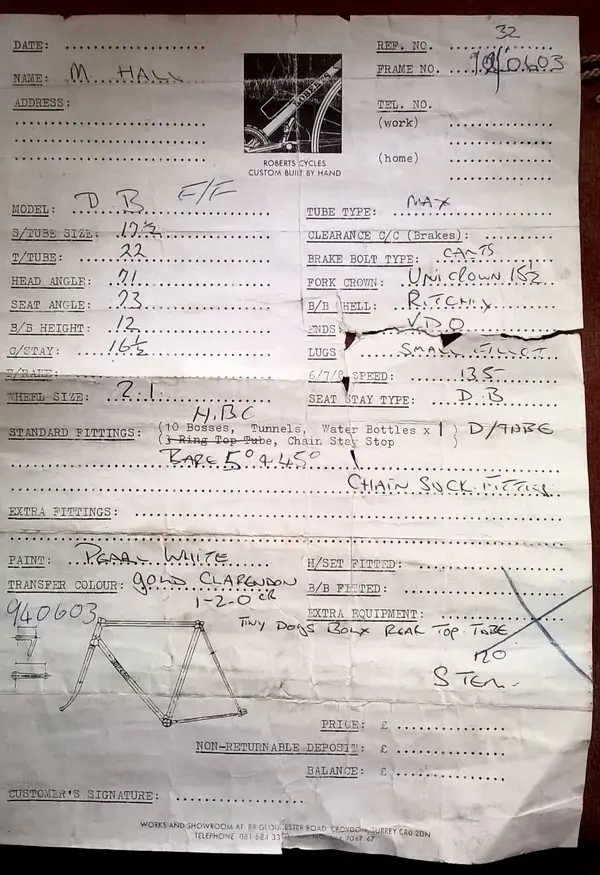 32
DATE:
REF. NO.
NAME: M HALL
FRAME NO. 940603
ADDRESS:
TEL. NO.
(work)
(home)
ROBERTS
ROBERTS CYCLES
CUSTOM BUILT BY HAND
MODEL: D B F/F
TUBE TYPE: MAX
S/TUBE SIZE: 17½
CLEARANCE C/C (Brakes):
T/TUBE: 22
BRAKE BOLT TYPE: CANTS
HEAD ANGLE: 71
FORK CROWN: UNICROWN 15½
SEAT ANGLE: 73
B/B SHELL: RITCHIX
B/B HEIGHT: 12
ENDS VDO
C/STAY: 16½
LUGS SMALL FILLET
B/RAKE:
6/7/8 SPEED: 135
WHEEL SIZE: 2.1
SEAT STAY TYPE: D.B
H.B.C
STANDARD FITTINGS: (10 Bosses, Tunnels, Water Bottles x 1 ) D/TABE
(3 Ring Top Tube, Chain Stay Stop )
BARE 5° & 45°
CHAIN SUCK FITTING
EXTRA FITTINGS:
PAINT: PEARL WHITE
H/SET FITTED:
TRANSFER COLOUR: GOLD CLARENDON
B/B FITTED:
1-2-0 CR
940603
EXTRA EQUIPMENT:
TINY DOGS BOLX REAR TOP TABE
NO
STEM
PRICE: £
NON-RETURNABLE DEPOSIT: £
BALANCE: £
CUSTOMER'S SIGNATURE:
WORKS AND SHOWROOM AT 89 GLOUCESTER ROAD, CROYDON, SURREY CR0 2DN
TELEPHONE 081-684 33